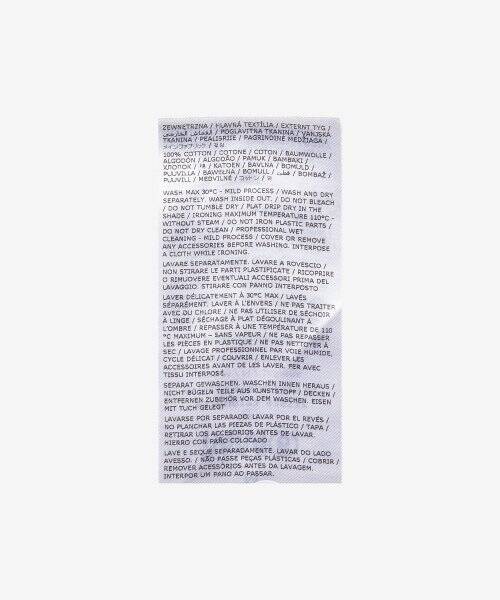 ZEWNETRZNA / HLAVNÁ TEXTÍLIA / EXTERNT TYG /
القماش الخارجي / POGLAVITNA TKANINA / VANJSKA
TKANINA / PEALISRIIE / PAGRINDINĖ MEDŽIAGA /
メインファブリック /
100% COTTON / COTONE / COTON / BAUMWOLLE /
ALGODÓN / ALGODÃO / PAMUK / BAMBAKI /
ХЛОПОК / 棉 / KATOEN / BAVLNA / BOMULD /
PUUVILLA / BAWEŁNA / BOMULL / قطن / BOMBAŽ /
PUUVILL / MEDVILNĖ / コットン / 면
WASH MAX 30°C - MILD PROCESS / WASH AND DRY
SEPARATELY. WASH INSIDE OUT. / DO NOT BLEACH
/ DO NOT TUMBLE DRY / FLAT DRIP DRY IN THE
SHADE / IRONING MAXIMUM TEMPERATURE 110°C -
WITHOUT STEAM / DO NOT IRON PLASTIC PARTS /
DO NOT DRY CLEAN / PROFESSIONAL WET
CLEANING - MILD PROCESS / COVER OR REMOVE
ANY ACCESSORIES BEFORE WASHING. INTERPOSE
A CLOTH WHILE IRONING.
LAVARE SEPARATAMENTE. LAVARE A ROVESCIO /
NON STIRARE LE PARTI PLASTIFICATE / RICOPRIRE
O RIMUOVERE EVENTUALI ACCESSORI PRIMA DEL
LAVAGGIO. STIRARE CON PANNO INTERPOSTO
LAVER DÉLICATEMENT À 30°C MAX / LAVÉS
SÉPARÉMENT. LAVER À L'ENVERS / NE PAS TRAITER
AVEC DU CHLORE / NE PAS UTILISER DE SÉCHOIR
À LINGE / SÉCHAGE À PLAT DÉGOULINANT À
L'OMBRE / REPASSER À UNE TEMPÉRATURE DE 110
°C MAXIMUM – SANS VAPEUR / NE PAS REPASSER
LES PIÈCES EN PLASTIQUE / NE PAS NETTOYER À
SEC / LAVAGE PROFESSIONNEL PAR VOIE HUMIDE,
CYCLE DÉLICAT / COUVRIR / ENLEVER LES
ACCESSOIRES AVANT DE LES LAVER. FER AVEC
TISSU INTERPOSÉ.
SEPARAT GEWASCHEN. WASCHEN INNEN HERAUS /
NICHT BÜGELN TEILE AUS KUNSTSTOFF / DECKEN /
ENTFERNEN ZUBEHÖR VOR DEM WASCHEN. EISEN
MIT TUCH GELEGT
LAVARSE POR SEPARADO. LAVAR POR EL REVÉS /
NO PLANCHAR LAS PIEZAS DE PLÁSTICO / TAPA /
RETIRAR LOS ACCESORIOS ANTES DE LAVAR.
HIERRO CON PAÑO COLOCADO
LAVE E SEQUE SEPARADAMENTE. LAVAR DO LADO
AVESSO. / NÃO PASSE PEÇAS PLÁSTICAS / COBRIR /
REMOVER ACESSÓRIOS ANTES DA LAVAGEM.
INTERPOR UM PANO AO PASSAR.